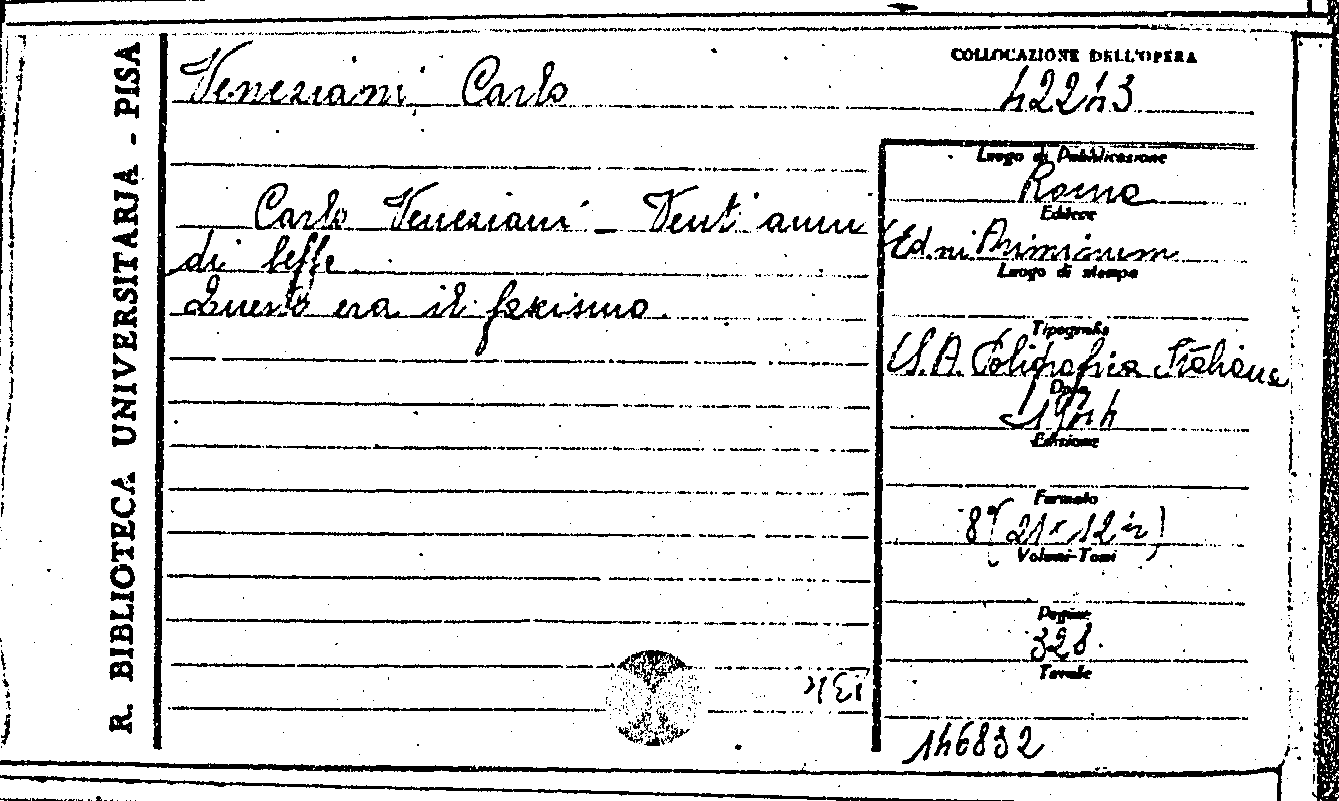 R. BIBLIOTECA UNIVERSITARIA - PISA
Veneziani Carlo
COLLOCAZIONE DELL'OPERA
42243
Carlo Veneziani - Vent'anni
di beffe
Questo era il fascismo.
Luogo di Pubblicazione
Roma
Editore
Ed.ni Ariminum
Luogo di stampa
Tipografia
S.A. Poligrafica Italiana
Data
1944
Edizione
Formato
8° (21 x 12
Volumi-Tomi
Pagine
328.
Tavole
146832